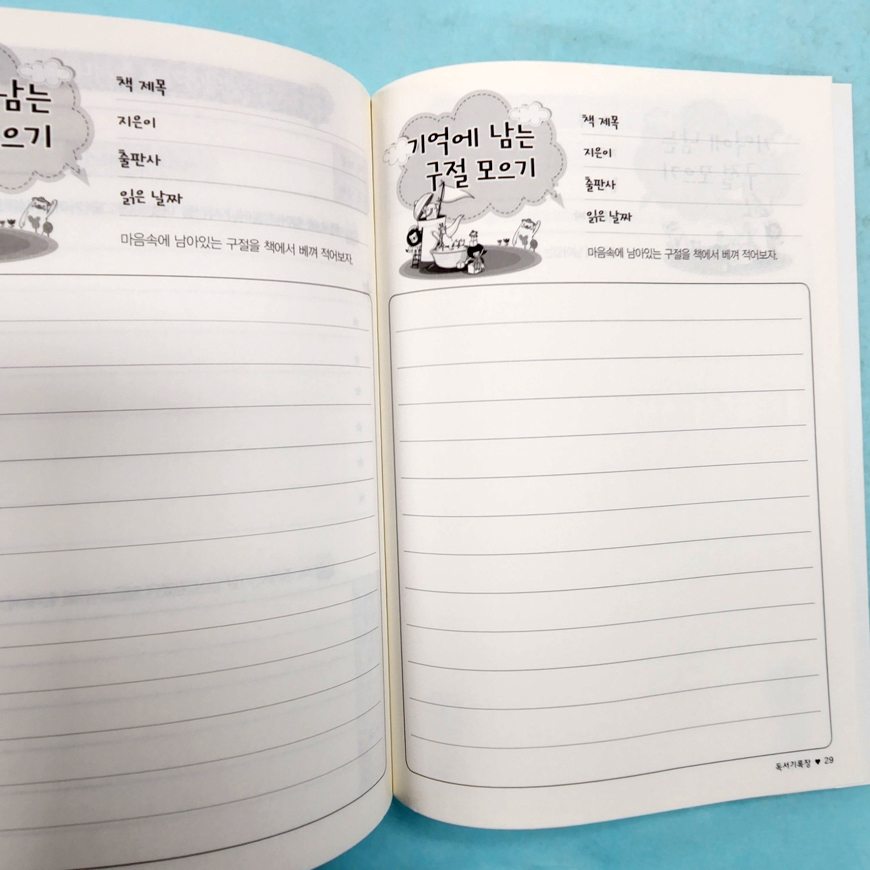 남는
으기
책 제목
지은이
출판사
읽은 날짜
마음속에 남아있는 구절을 책에서 베껴 적어보자.
기억에 남는
구절 모으기
책 제목
지은이
출판사
읽은 날짜
마음속에 남아있는 구절을 책에서 베껴 적어보자.
독서기록장 ♥ 29